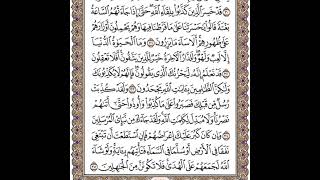 قَدْ خَسِرَ ٱلَّذِينَ كَذَّبُوا۟ بِلِقَآءِ ٱللَّهِ ۖ حَتَّىٰٓ إِذَا جَآءَتْهُمُ ٱلسَّاعَةُ
بَغْتَةً قَالُوا۟ يَٰحَسْرَتَنَا عَلَىٰ مَا فَرَّطْنَا فِيهَا وَهُمْ يَحْمِلُونَ أَوْزَارَهُمْ
عَلَىٰ ظُهُورِهِمْ ۚ أَلَا سَآءَ مَا يَزِرُونَ ۝٣١ وَمَا ٱلْحَيَوٰةُ ٱلدُّنْيَآ
إِلَّا لَعِبٌ وَلَهْوٌ ۖ وَلَلدَّارُ ٱلْـَٔاخِرَةُ خَيْرٌ لِّلَّذِينَ يَتَّقُونَ ۗ أَفَلَا تَعْقِلُونَ
۝٣٢ قَدْ نَعْلَمُ إِنَّهُۥ لَيَحْزُنُكَ ٱلَّذِى يَقُولُونَ ۖ فَإِنَّهُمْ لَا يُكَذِّبُونَكَ
وَلَٰكِنَّ ٱلظَّٰلِمِينَ بِـَٔايَٰتِ ٱللَّهِ يَجْحَدُونَ ۝٣٣ وَلَقَدْ كُذِّبَتْ
رُسُلٌ مِّن قَبْلِكَ فَصَبَرُوا۟ عَلَىٰ مَا كُذِّبُوا۟ وَأُوذُوا۟ حَتَّىٰٓ أَتَىٰهُمْ
نَصْرُنَا ۚ وَلَا مُبَدِّلَ لِكَلِمَٰتِ ٱللَّهِ ۚ وَلَقَدْ جَآءَكَ مِن نَّبَإِى۟ ٱلْمُرْسَلِينَ
۝٣٤ وَإِن كَانَ كَبُرَ عَلَيْكَ إِعْرَاضُهُمْ فَإِنِ ٱسْتَطَعْتَ أَن تَبْتَغِىَ
نَفَقًا فِى ٱلْأَرْضِ أَوْ سُلَّمًا فِى ٱلسَّمَآءِ فَتَأْتِيَهُم بِـَٔايَةٍ ۚ وَلَوْ شَآءَ
ٱللَّهُ لَجَمَعَهُمْ عَلَى ٱلْهُدَىٰ ۚ فَلَا تَكُونَنَّ مِنَ ٱلْجَٰهِلِينَ ۝٣٥